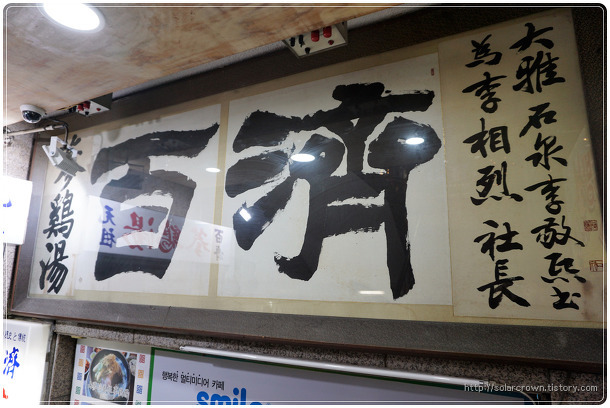 百濟
蔘鷄湯
為李相烈社長
大雅石泉李敬熙書
元祖
湯
濟
행복한 멀티미디어 카페
smile
http://solarcrown.tistory.com